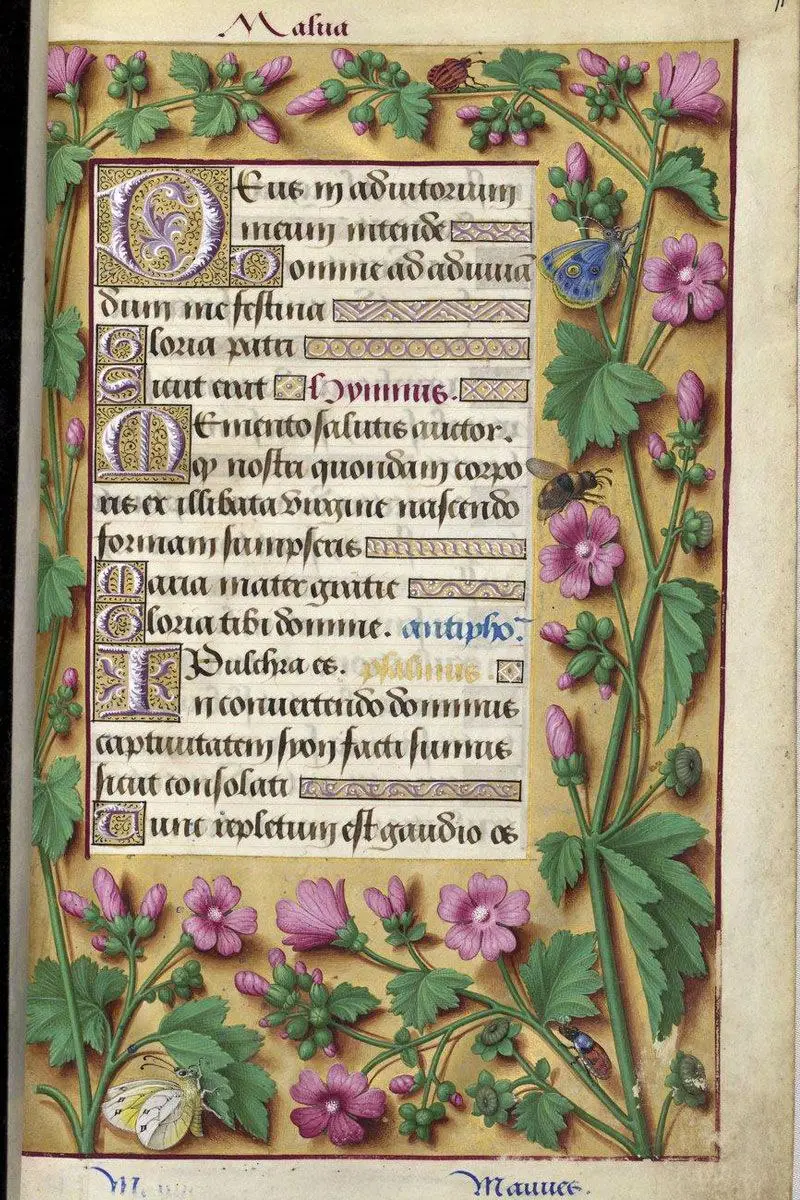 Malua
Deus in adiutorium
meum intende
Domine ad adiuuā
dum me festina
Gloria patri
Sicut erat Hymnus.
Memento salutis auctor.
qͥ nostri quondam corpo
ris ex illibata virgine nascendo
formam sumpseris
Maria mater gratie
Gloria tibi domine. antipho.
Pulchra es. psalmus.
In conuertendo dominus
captiuitatem syon facti sumus
sicut consolati
Tunc repletum est gaudio os
Mauues.